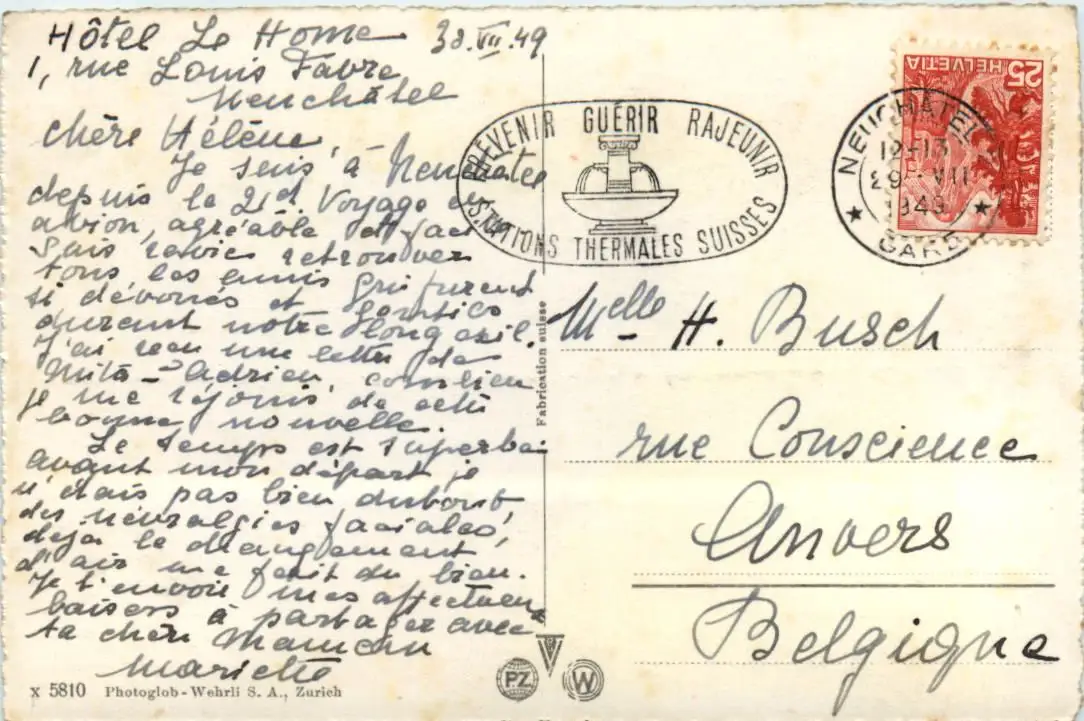 Hôtel Le Home 30.VII.49
1, rue Louis Favre
Neuchâtel
Chère Hélène,
Je suis à Neuchâtel
depuis le 21d Voyage en
avion, agréable et
suis ravie retrouver
tous les amis qui furent
si dévoués et gentils
durant notre long exil.
J'ai reçu une lettre de
Adrien, combien
je me réjouis de cette
bonne nouvelle.
Le temps est superbe
avant mon départ je
n'étais pas bien debout,
des névralgies faciales,
déjà le changement
d'air me fait du bien.
Je t'envoie mes affectueux
baisers à partager avec
ta chère Maman
Mariette
x 5810 Photoglob-Wehrli S. A., Zurich
Fabrication suisse
PZ
W
PRÉVENIR GUÉRIR RAJEUNIR
STATIONS THERMALES SUISSES
NEUCHÂTEL
12-13
29.VII
1949
GARE
HELVETIA 25
Melle H. Busch
rue Conscience
Anvers
Belgique